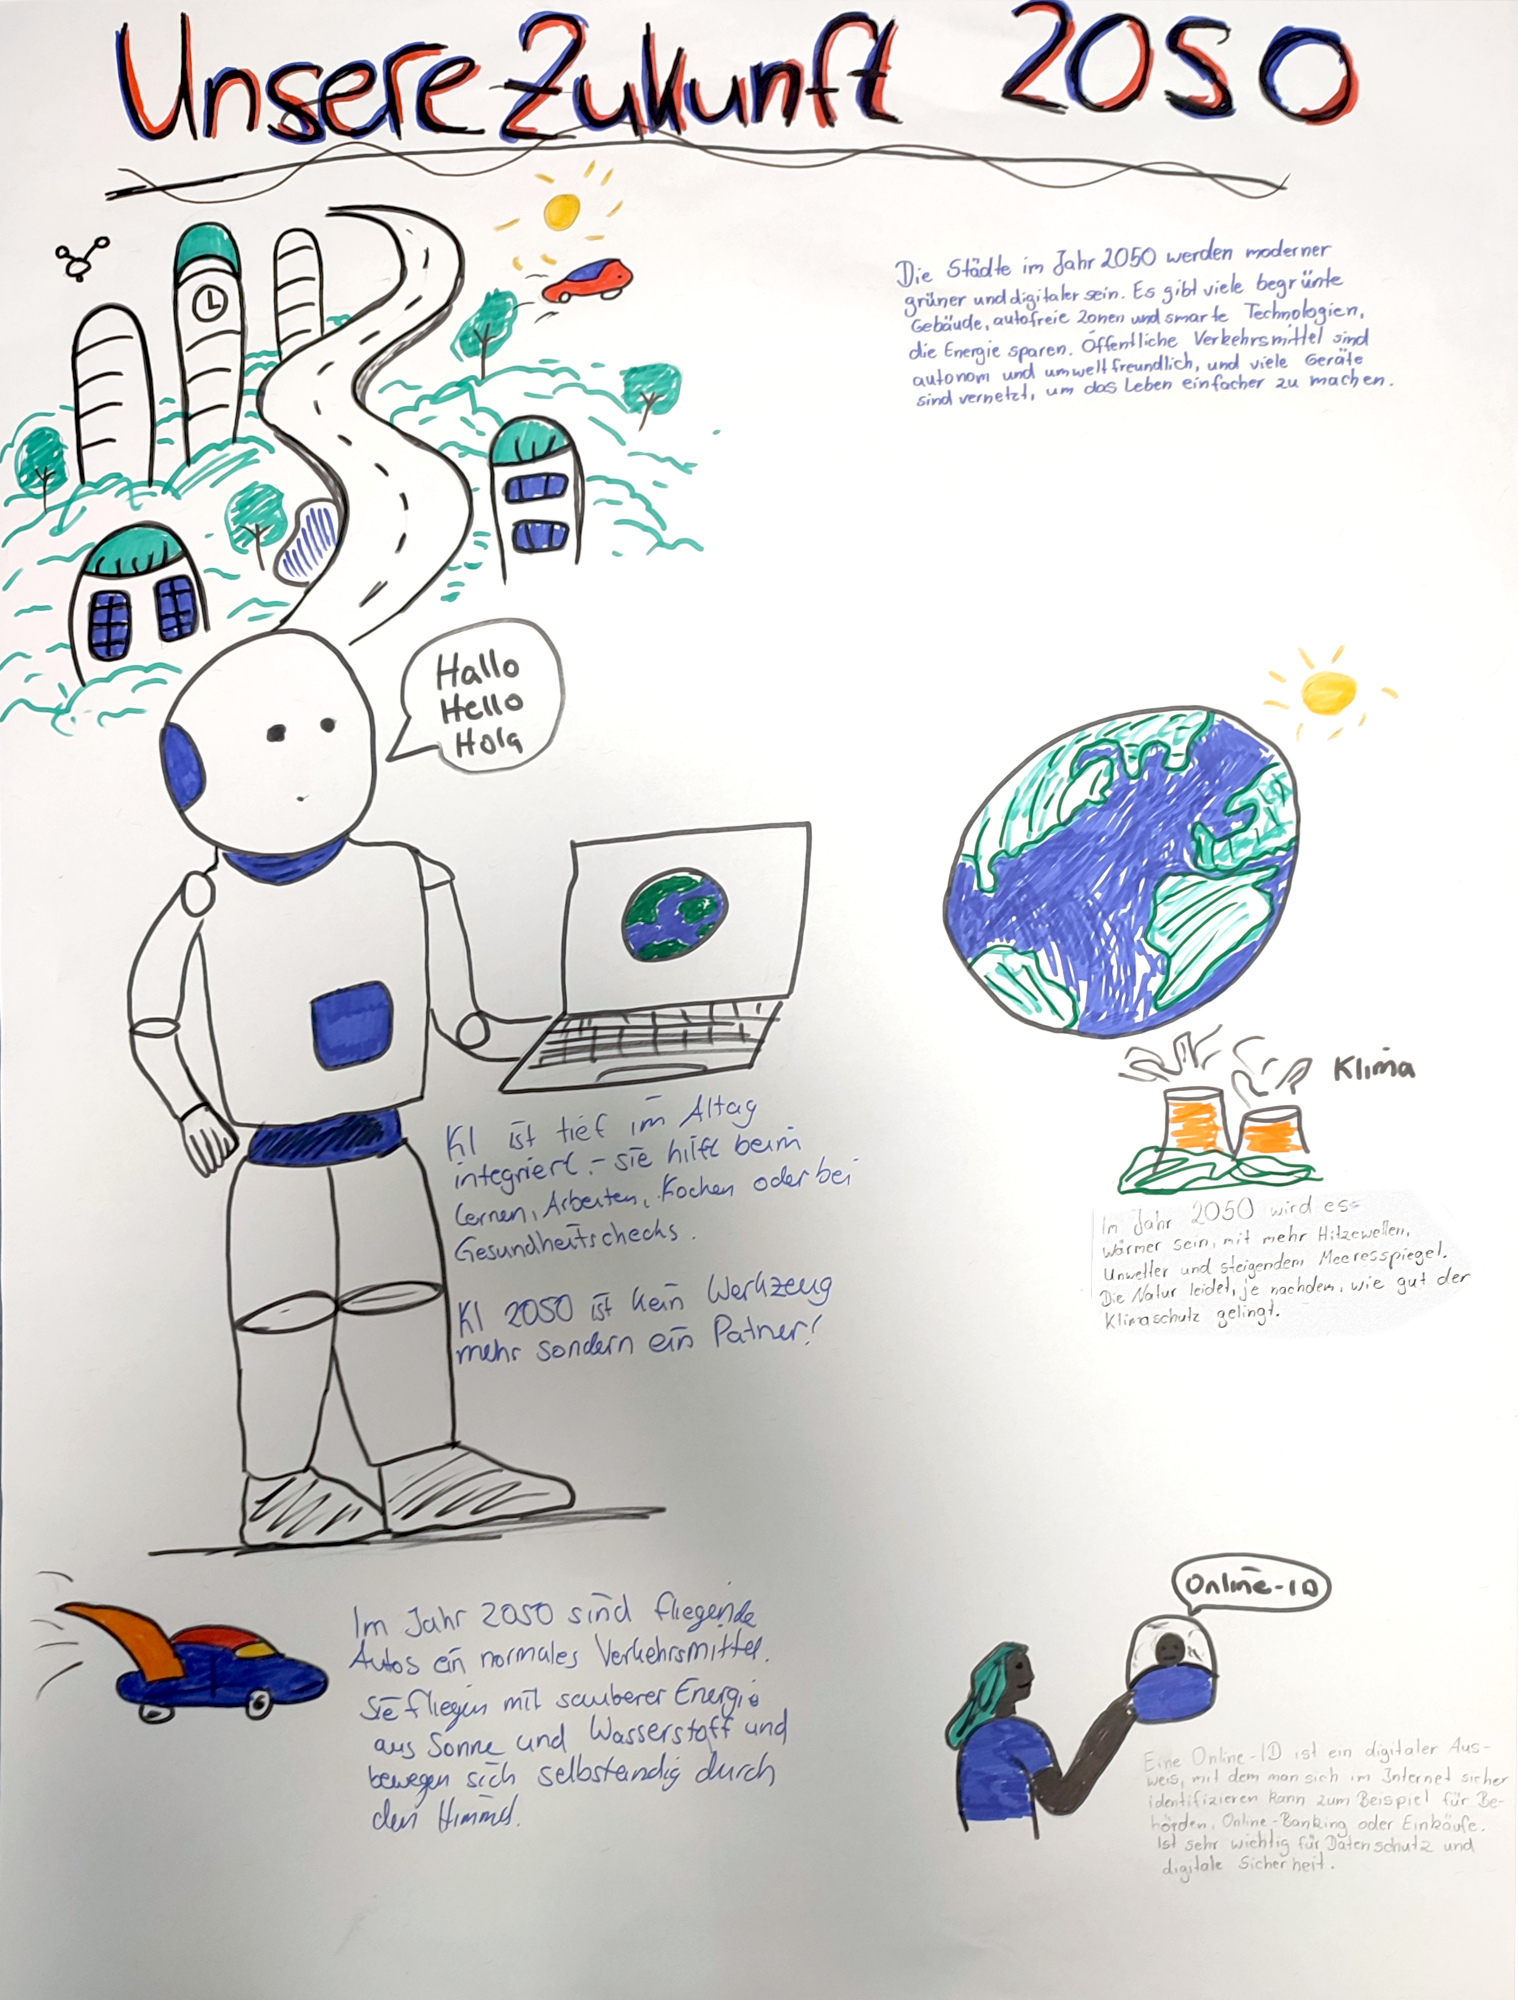 Unsere Zukunft 2050
Die Städte im Jahr 2050 werden moderner
grüner und digitaler sein. Es gibt viele begrünte
Gebäude, autofreie Zonen und smarte Technologien,
die Energie sparen. Öffentliche Verkehrsmittel sind
autonom und umweltfreundlich, und viele Geräte
sind vernetzt, um das Leben einfacher zu machen.
Hallo
Hello
Hola
KI ist tief im Altag
integriert - sie hilft beim
Lernen, Arbeiten, Kochen oder bei
Gesundheitschecks.
KI 2050 ist kein Werkzeug
mehr sondern ein Patner!
Klima
Im Jahr 2050 wird es
wärmer sein, mit mehr Hitzewellen,
Unwetter und steigendem Meeresspiegel.
Die Natur leidet, je nachdem, wie gut der
Klimaschutz gelingt.
Im Jahr 2050 sind fliegende
Autos ein normales Verkehrsmittel.
Sie fliegen mit sauberer Energie
aus Sonne und Wasserstoff und
bewegen sich selbständig durch
den Himmel.
Online-ID
Eine Online-ID ist ein digitaler Aus-
weis, mit dem man sich im Internet sicher
identifizieren kann zum Beispiel für Be-
hörden, Online-Banking oder Einkäufe.
Ist sehr wichtig für Datenschutz und
digitale Sicherheit.